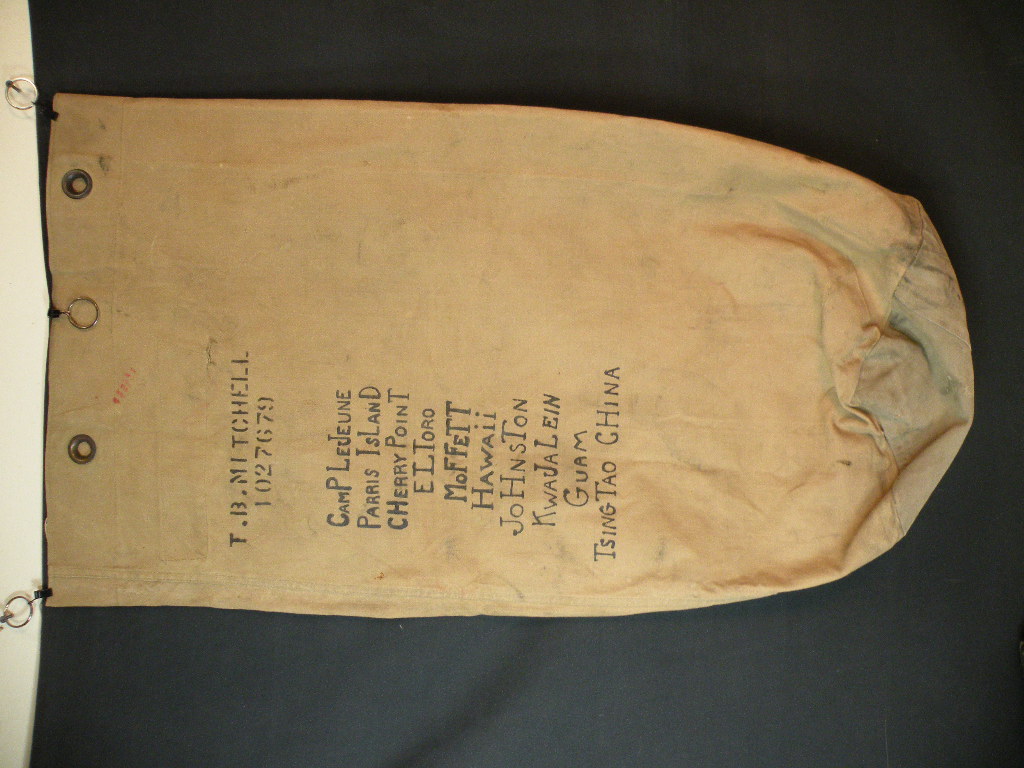 T.B.MITCHELL
1027679
CAMP LEJEUNE
PARRIS ISLAND
CHERRY POINT
EL TORO
MOFFETT
HAWAii
JOHNSTON
KWAJALEIN
GUAM
TSINGTAO CHINA